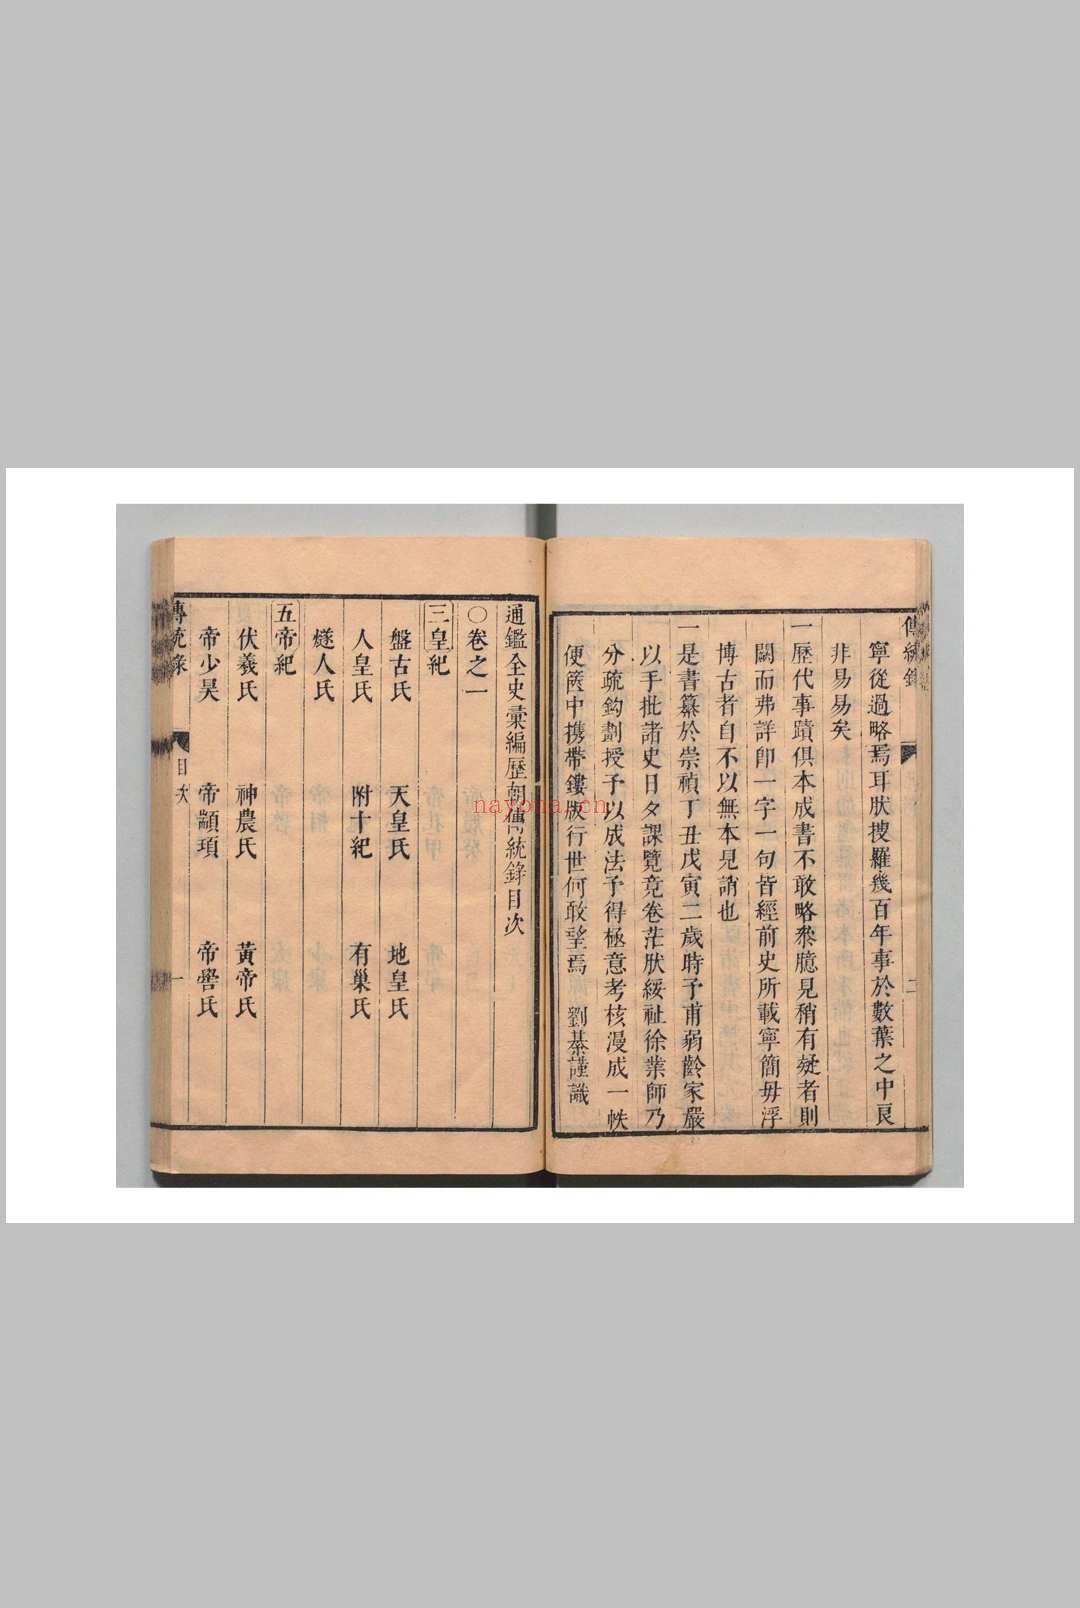 傳統錄
二
寧從過略焉耳狀搜羅幾百年事於數葉之中良
非易易矣
一歷代事蹟俱本成書不敢略叅臆見稍有疑者則
闕而弗詳卽一字一句皆經前史所載寧簡毋浮
博古者自不以無本見誚也
一是書纂於崇禎丁丑戊寅二歲時予甫弱齡家嚴
以手批諸史日夕課覽竟卷茫狀綏祉徐業師乃
分疏鈎劃授予以成法予得極意考核漫成一帙
便篋中携帶鏤版行世何敢望焉 劉綦謹識
通鑑全史彙編歷朝傳統錄目次
○卷之一
三皇紀
盤古氏 天皇氏 地皇氏
人皇氏 附十紀 有巢氏
燧人氏
五帝紀
伏羲氏 神農氏 黃帝氏
帝少昊 帝顓頊 帝嚳氏
傳統錄 目次 一
nayona.cn